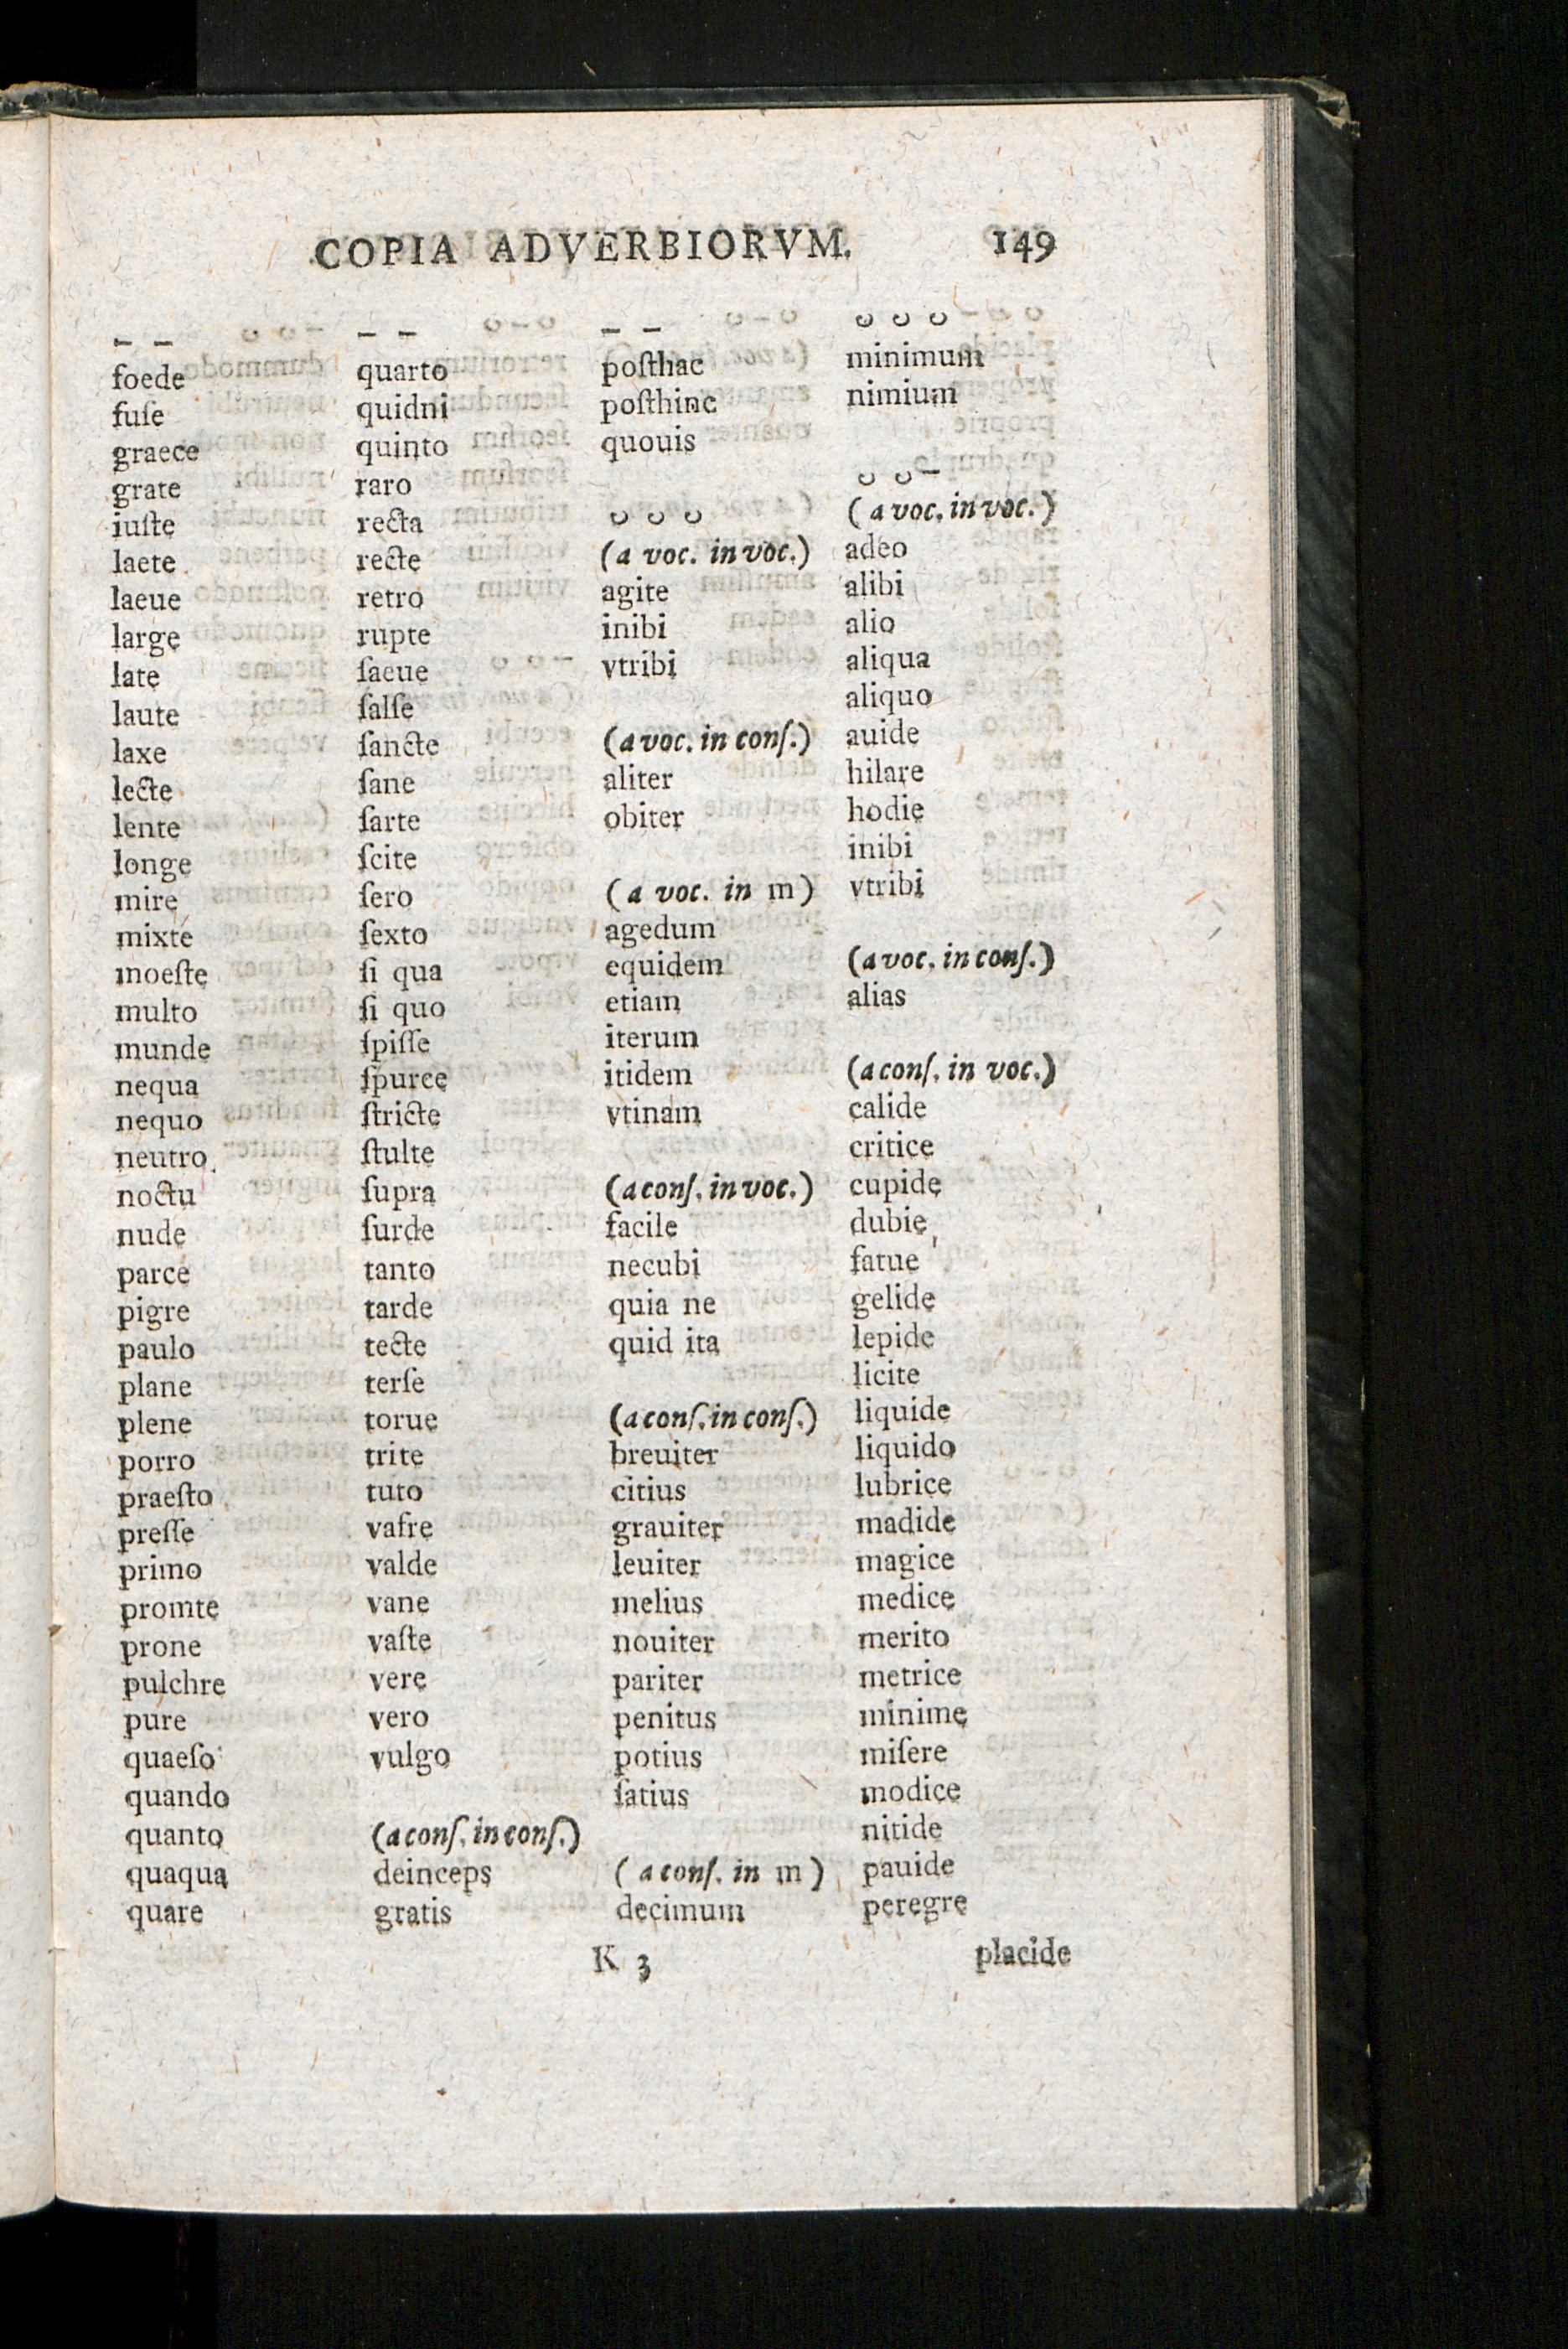 COPIA ADVERBIORVM. 149
– –
foede
fuſe
graece
grate
iuſte
laete
laeue
large
late
laute
laxe
lecte
lente
longe
mire
mixte
moeſte
multo
munde
nequa
nequo
neutro
noctu
nude
parce
pigre
paulo
plane
plene
porro
praeſto
preſſe
primo
promte
prone
pulchre
pure
quaeſo
quando
quanto
quaqua
quare
– –
quarto
quidni
quinto
raro
recta
recte
retro
rupte
ſaeue
ſalſe
ſancte
ſane
ſarte
ſcite
ſero
ſexto
ſi qua
ſi quo
ſpiſſe
ſpurce
ſtricte
ſtulte
ſupra
ſurde
tanto
tarde
tecte
terſe
torue
trite
tuto
vafre
valde
vane
vaſte
vere
vero
vulgo
(a conſ. in conſ.)
deinceps
gratis
– –
poſthac
poſthinc
quouis
◡ ◡ ◡
(a voc. in voc.)
agite
inibi
vtribi
(a voc. in conſ.)
aliter
obiter
(a voc. in m)
agedum
equidem
etiam
iterum
itidem
vtinam
(a conſ. in voc.)
facile
necubi
quia ne
quid ita
(a conſ. in conſ.)
breuiter
citius
grauiter
leuiter
melius
nouiter
pariter
penitus
potius
ſatius
(a conſ. in m)
decimum
◡ ◡ ◡
minimum
nimium
◡ ◡ –
(a voc. in voc.)
adeo
alibi
alio
aliqua
aliquo
auide
hilare
hodie
inibi
vtribi
(a voc. in conſ.)
alias
(a conſ. in voc.)
calide
critice
cupide
dubie
fatue
gelide
lepide
licite
liquide
liquido
lubrice
madide
magice
medice
merito
metrice
minime
miſere
modice
nitide
pauide
peregre
K 3
placide